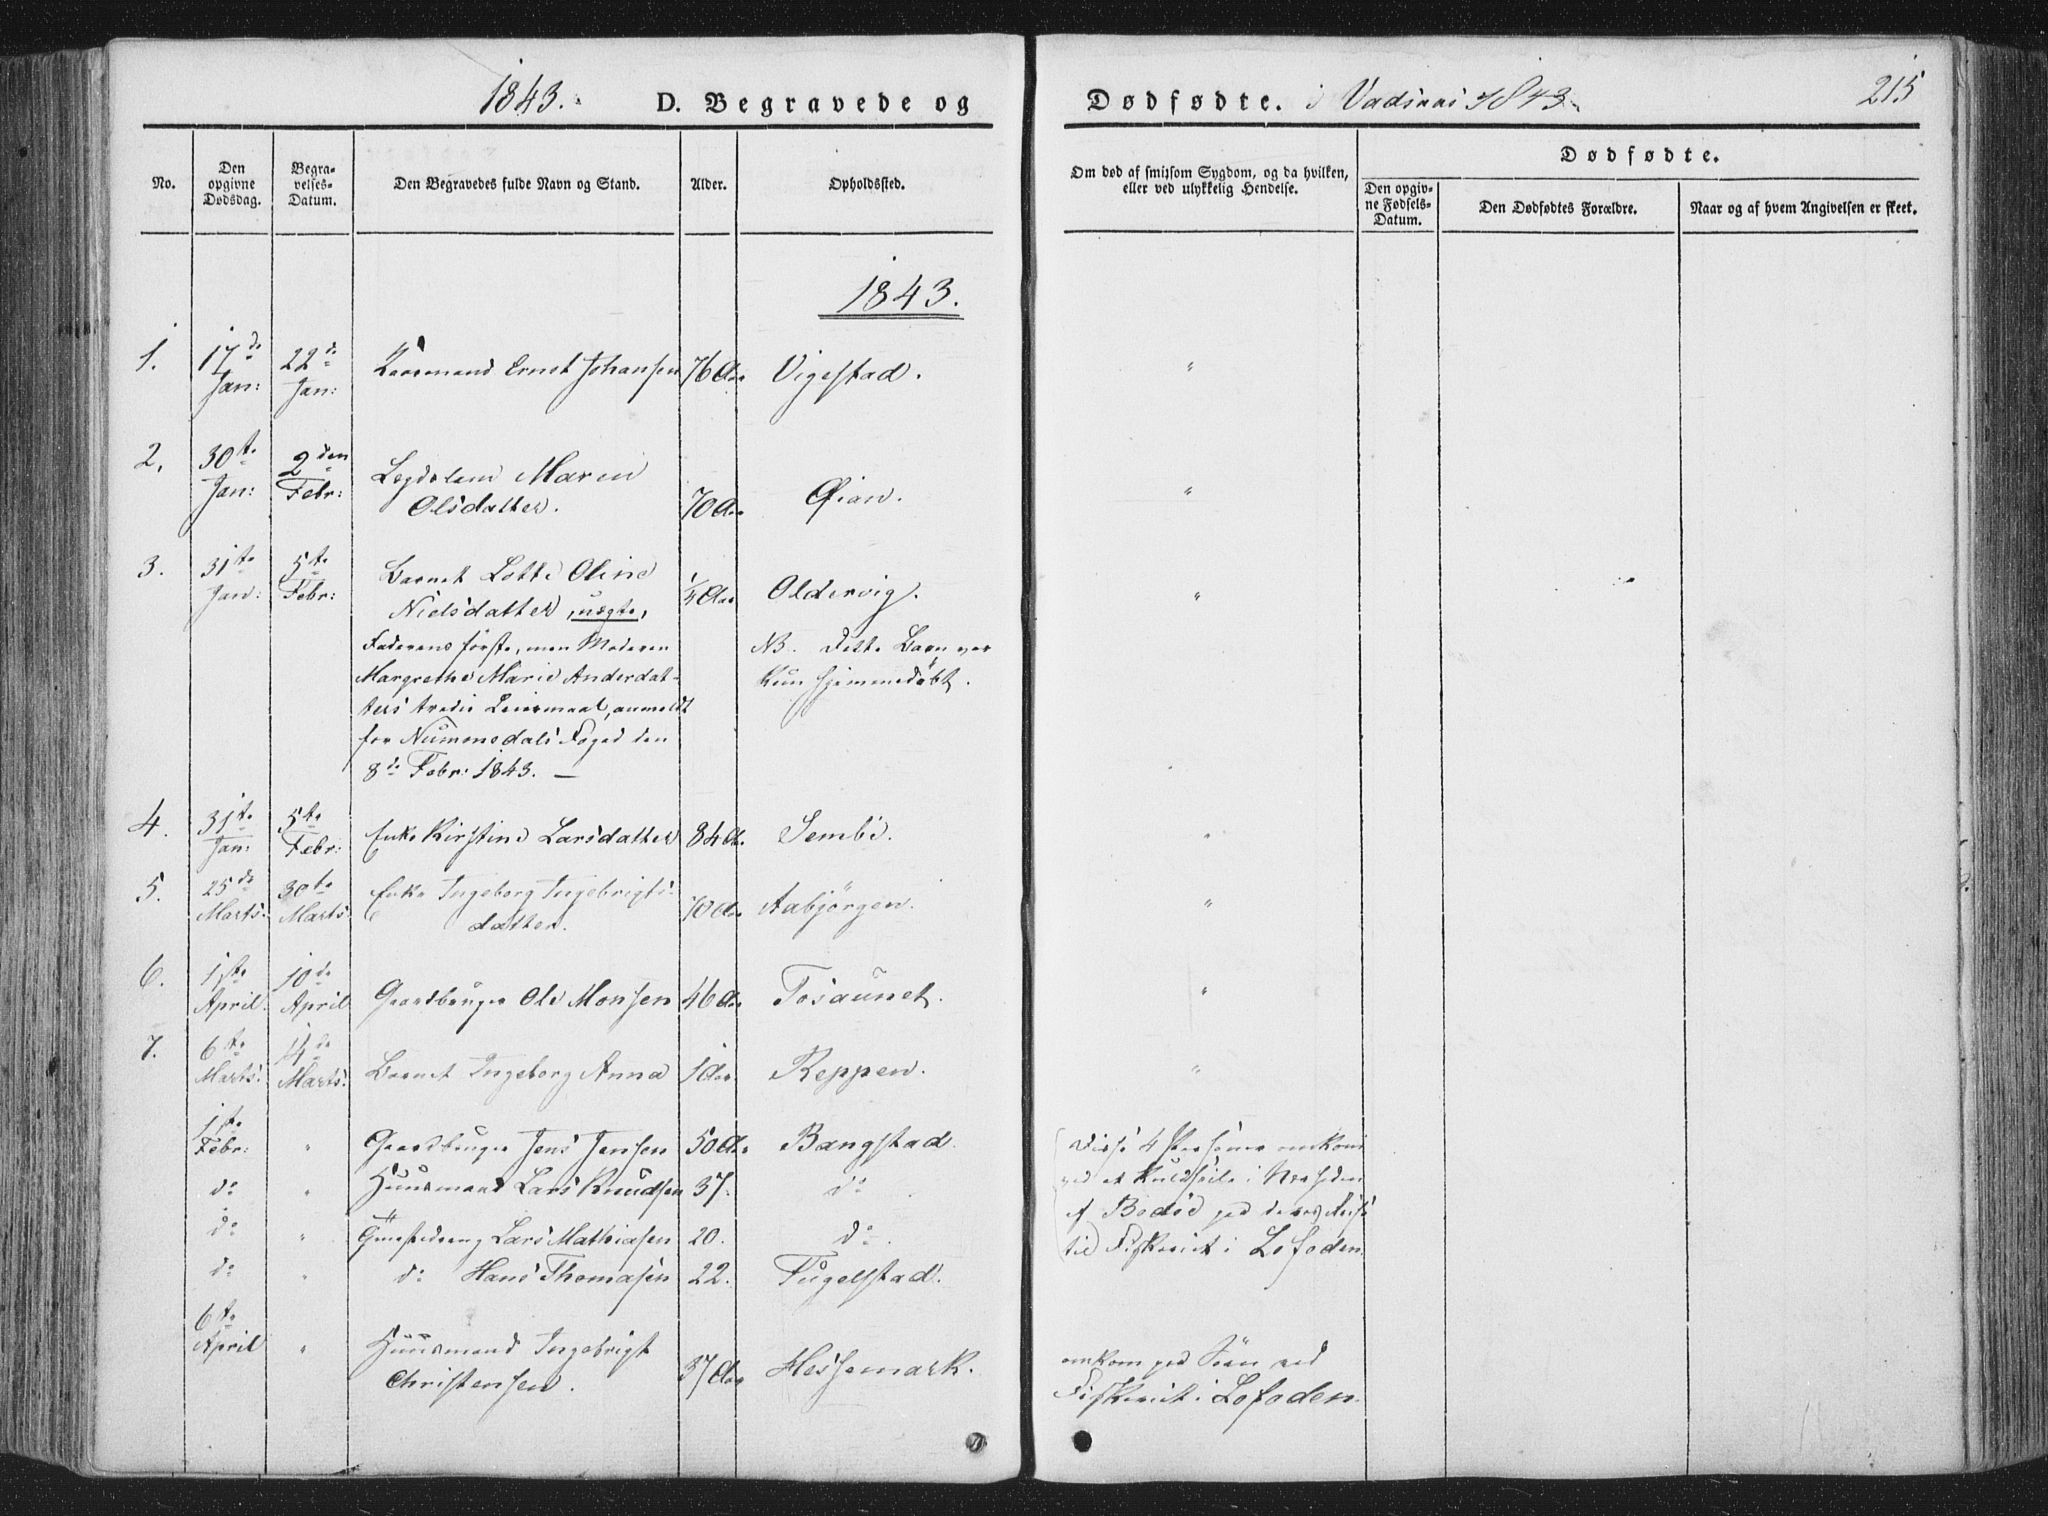 1843. D. Begravede og
Dødfødte. i Vadsaas 1843. 215
No.
Den opgivne Dødsdag.
Begravelses-Datum.
Den Begravedes fulde Navn og Stand.
Alder.
Opholdssted.
Om død af smitsom Sygdom, og da hvilken, eller ved ulykkelig Hendelse.
Dødfødte.
Den opgivne Fødsels-Datum.
Den Dødfødtes Forældre.
Naar og af hvem Angivelsen er skeet.
1843.
1. 17de Jan: 22de Jan: Kaarmand Ernst Johansen 76 Aar Vigestad. "
2. 30te Jan: 2den Febr: Legdslem Maren
Olsdatter. 70 Aar Øian. "
3. 31te Jan: 5te Febr: Barnet Lotte Oline
Nielsdatter, uægte, ¼ Aar Oldervig. "
Faderens første, men Moderen
Margrethe Marie Andersdat-
ters tredie Leiermaal, anmeldt
for Nummedals Foged den
8de Febr: 1843. —
NB. Dette Barn var
kun hjemmedøbt.
4. 31te Jan: 5te Febr: Enke Kirstine Larsdatter 84 Aar Sembe. "
5. 25de Marts: 30te Marts: Enke Ingeborg Ingebrigts-
datter. 70 Aar Aabjørgen. "
6. 1ste April. 10de April Gaardbruger Ole Monsen 46 Aar Tosaunet. "
7. 6te Marts: 14de Marts: Barnet Ingeborg Anna 1 Aar. Reppen. "
1ste Febr: " Gaardbruger Jens Jensen 50 Aar Bangstad.
do " Huusmand Lars Knudsen 37. do
do " Lars Mathiasen 20. do.
do " do Hans Thomasen 22. Fugelstad.
Disse 4 Personer omkom
ved et Kuldseile i Nærheden
af Bodøe paa deres Reise
til Fiskeriet i Lofoden.
6te April " Huusmand Ingebrigt
Christensen. 37 Aar Hessemark.
omkom paa Søen ved
Fiskeriet i Lofoden.